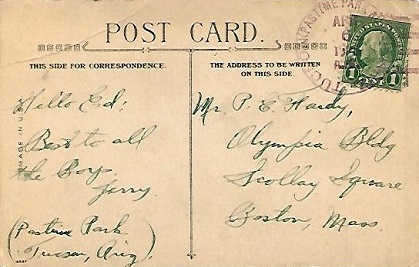 POST CARD.
THIS SIDE FOR CORRESPONDENCE.
THE ADDRESS TO BE WRITTEN
ON THIS SIDE.
PASTIME PARK
AP
6
TUC
1 CENT 1
MADE IN U.S.
Hello Ed:
Best to all
the Boys
Jerry.
(Pastime Park
Tucson, Ariz)
Mr. P. E. Hardy,
Olympia Bldg
Scollay Square
Boston, Mass.